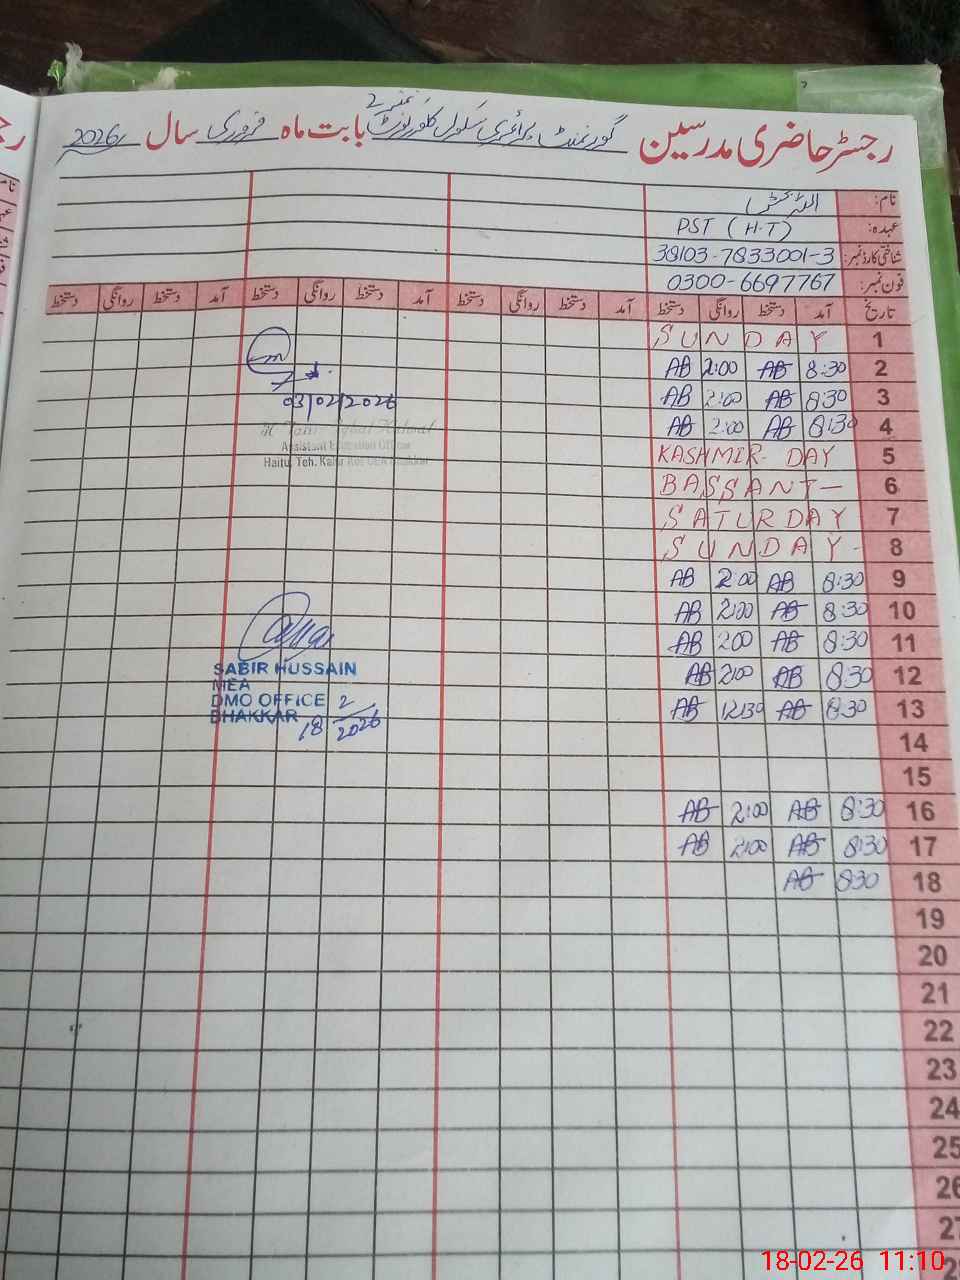 رجسٹر حاضری مدرسین گورنمنٹ پرائمری سکول کلورکوٹ نمبر 2 بابت ماہ فروری سال 2026
نام: اللہ بخش
عہدہ: PST (H.T)
شناختی کارڈ نمبر: 38103-7833001-3
فون نمبر: 0300-6697767
تاریخ آمد دستخط روانگی دستخط آمد دستخط روانگی دستخط آمد دستخط روانگی دستخط
1 SUNDAY
2 8:30 AB 2:00 AB
3 8:30 AB 2:00 AB
4 8:30 AB 2:00 AB
5 KASHMIR-DAY
6 BASSANT-
7 SATURDAY
8 SUNDAY-
9 8:30 AB 2:00 AB
10 8:30 AB 2:00 AB
11 8:30 AB 2:00 AB
12 8:30 AB 2:00 AB
13 8:30 AB 12:30 AB
14
15
16 8:30 AB 2:00 AB
17 8:30 AB 2:00 AB
18 8:30 AB
19
20
21
22
23
24
25
26
27
03/02/2026
Assistant Education Officer
SABIR HUSSAIN
MEA
DMO OFFICE
BHAKKAR
18/2/2026
18-02-26 11:10